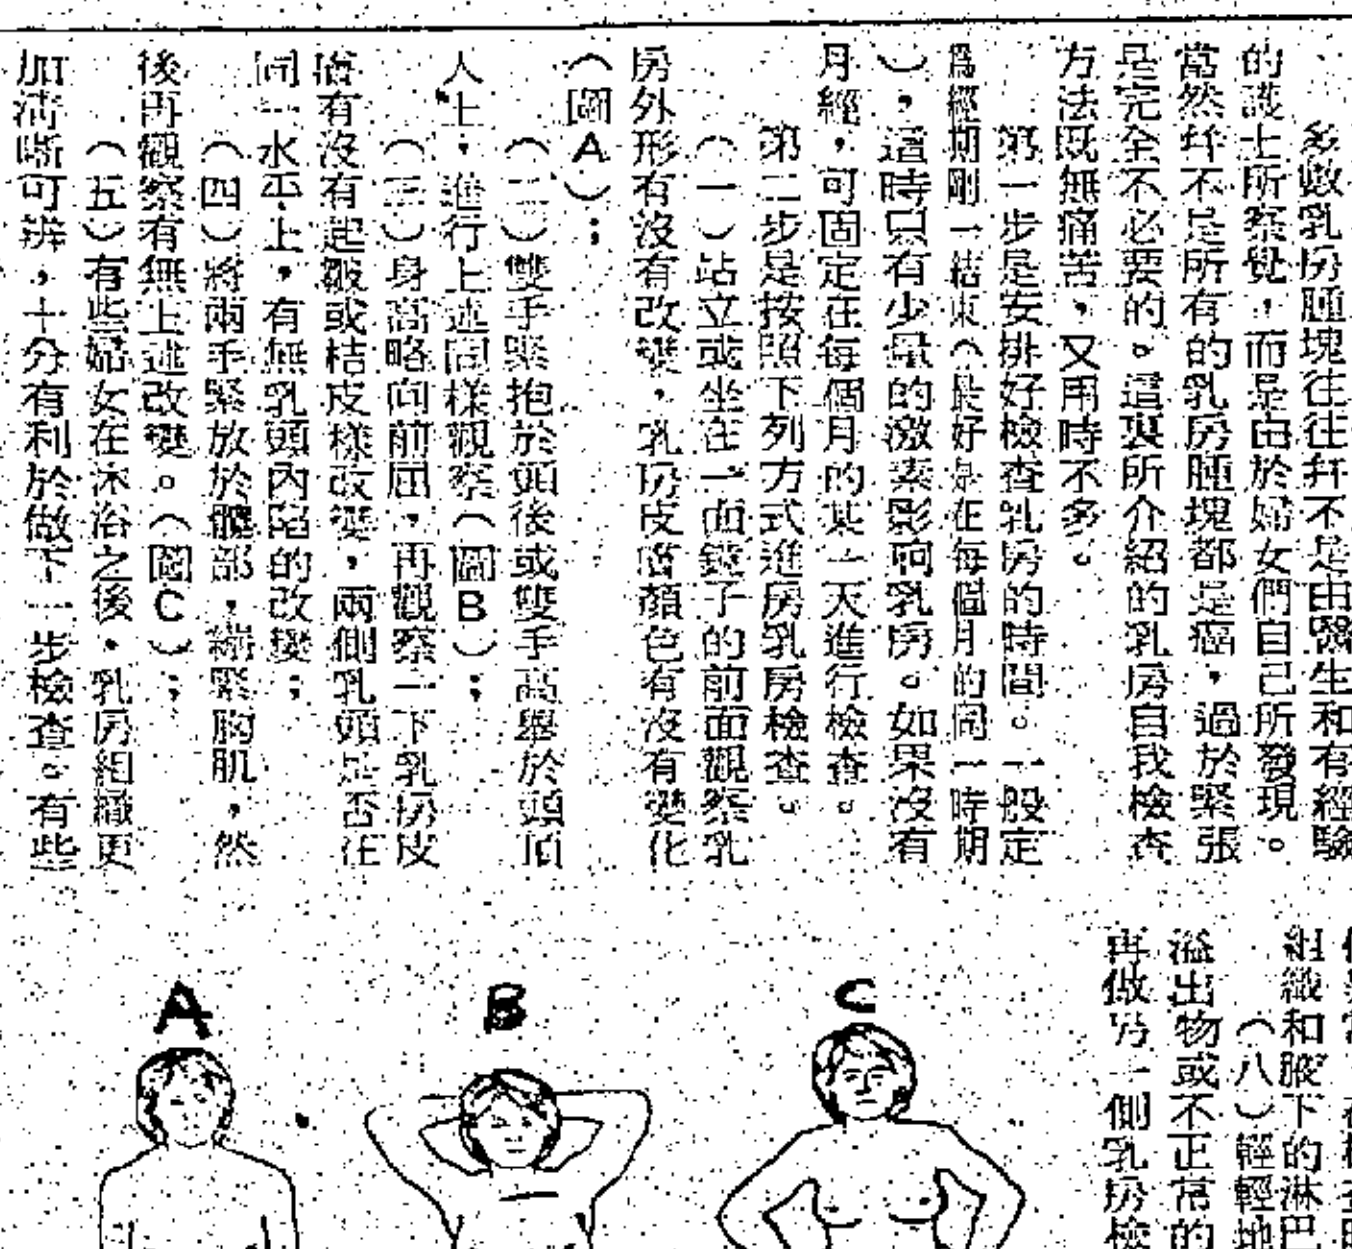 多數乳房腫塊往往并不是由醫生和有經驗
的護士所察覺，而是由於婦女們自己所發現。
當然并不是所有的乳房腫塊都是癌，過於緊張
是完全不必要的。這裏所介紹的乳房自我檢查
方法既無痛苦，又用時不多。
第一步是安排好檢查乳房的時間。一般定
爲經期剛一結束（最好是在每個月的同一時期
），這時只有少量的激素影响乳房。如果沒有
月經，可固定在每個月的某一天進行檢查。
第二步是按照下列方式進房乳房檢查。
（一）站立或坐在一面鏡子的前面觀察乳
房外形有沒有改變，乳房皮膚顏色有沒有變化
（圖A）；
（二）雙手緊抱於頭後或雙手高舉於頭頂
人上，進行上述同樣觀察（圖B）；
（三）身高略向前屈，再觀察一下乳房皮
膚有沒有起皺或桔皮樣改變，兩側乳頭是否在
同一水平上，有無乳頭內陷的改變；
（四）將兩手緊放於髖部，綳緊胸肌，然
後再觀察有無上述改變。（圖C）；
（五）有些婦女在沐浴之後，乳房組織更
加清晰可辨，十分有利於做下一步檢查。有些
組織和腋下的淋巴
（八）輕輕地
溢出物或不正常的
再做另一側乳房檢
A
B
C